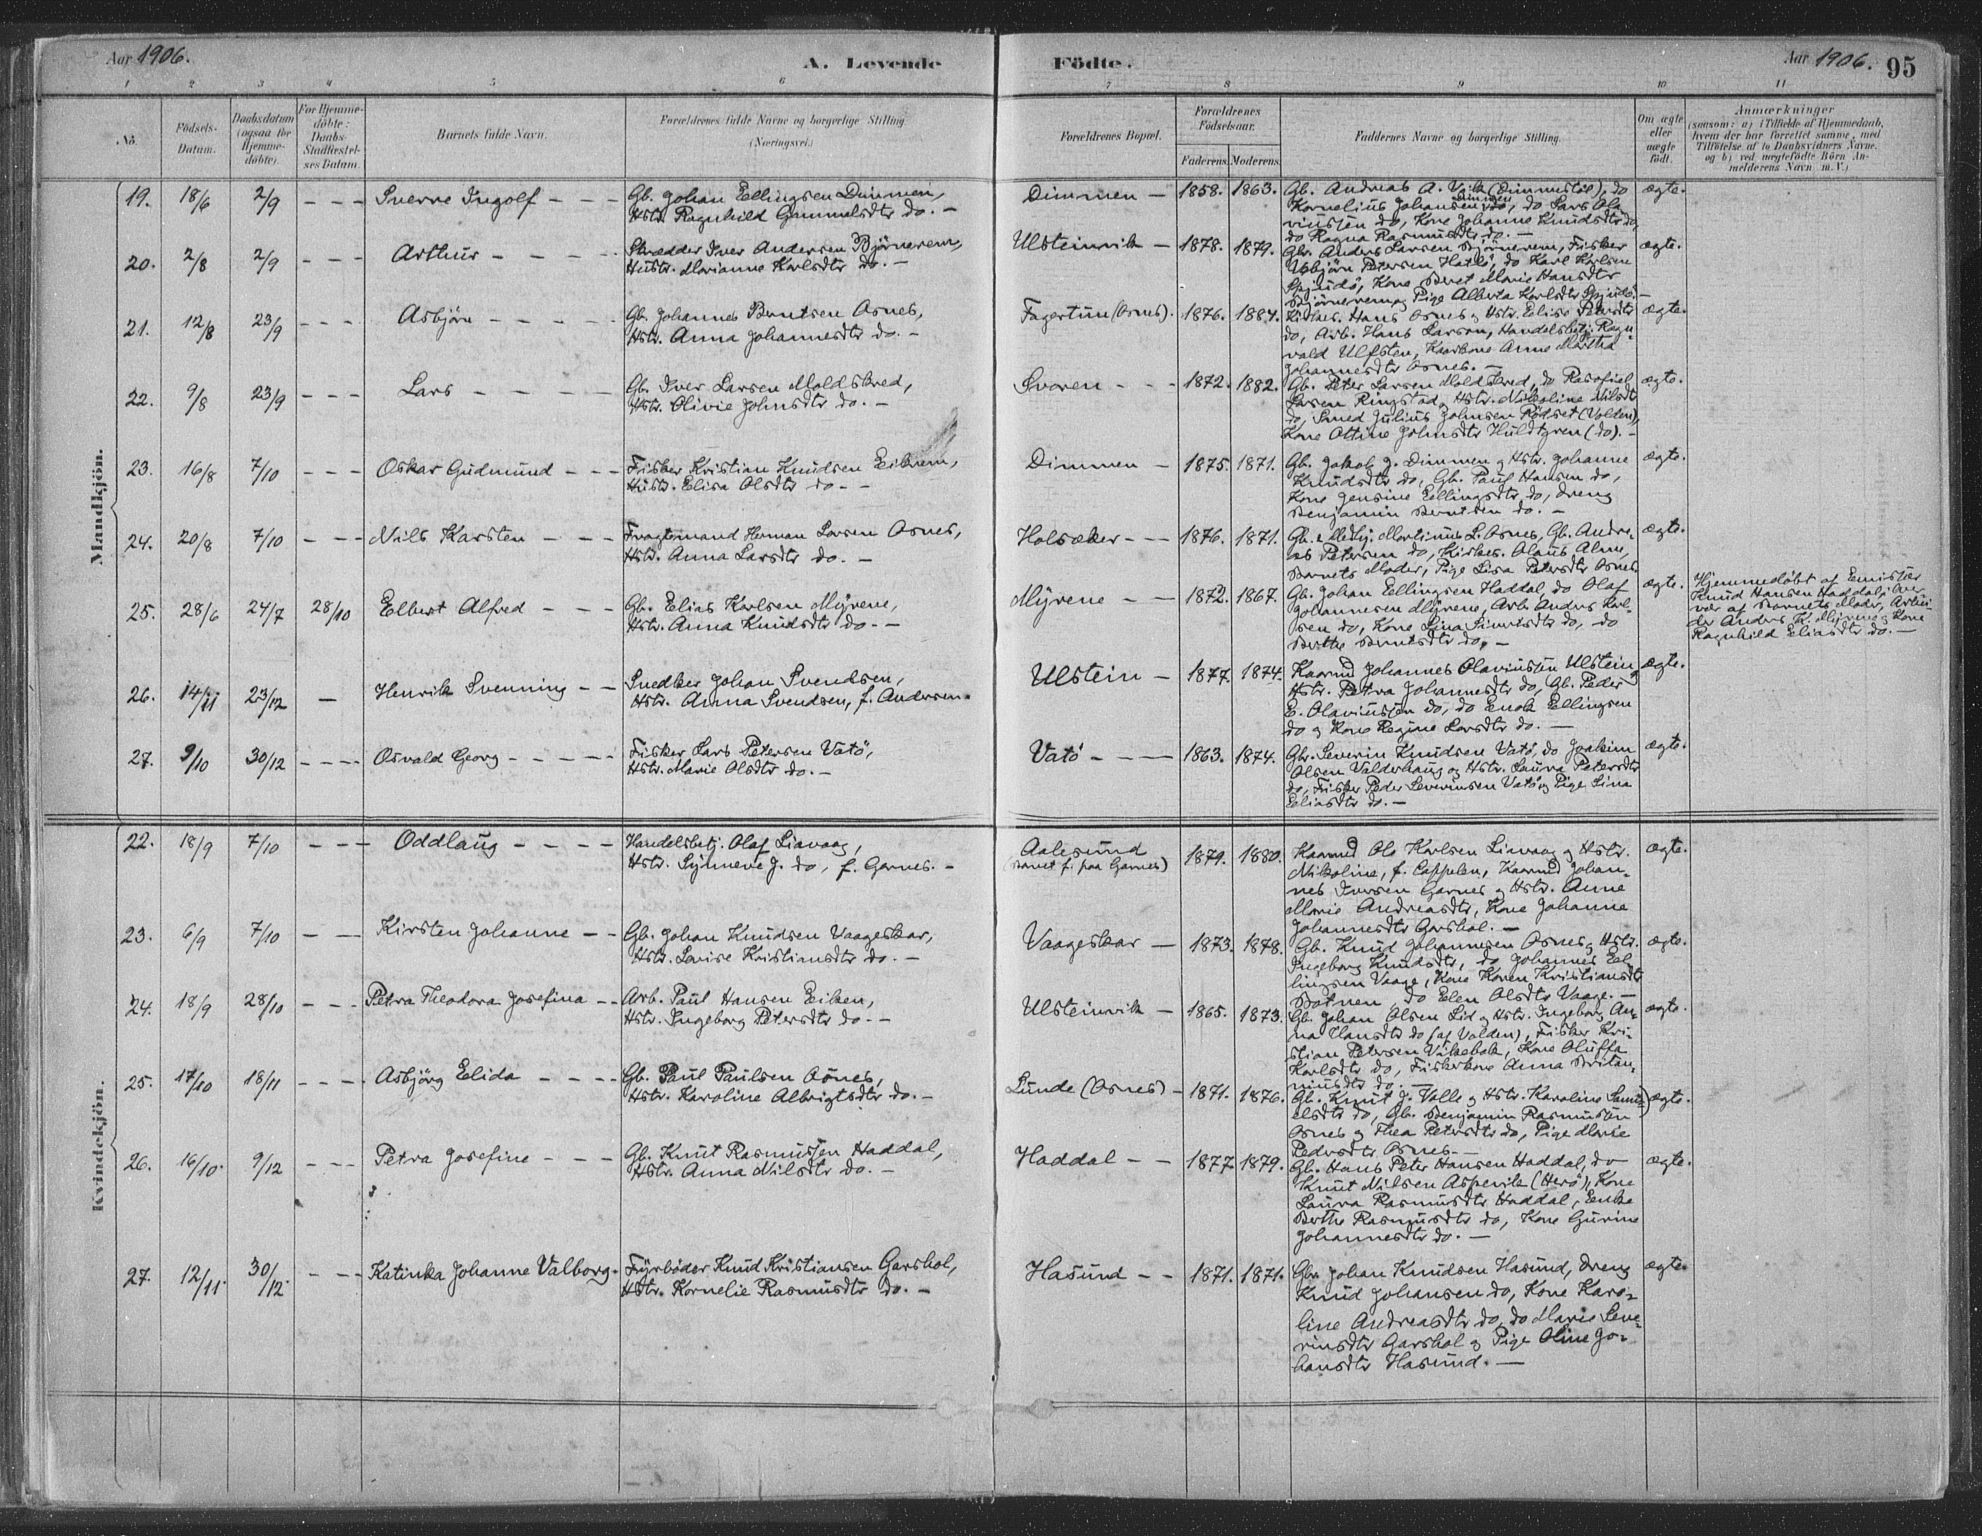 Aar 1906.
A. Levende
Födte.
Aar 1906.
95
1 2 3 4 5 6 7 8 9 10 11
No.
Födsels-Datum.
Daabsdatum (ogsaa for Hjemme-döbte).
For Hjemme-döbte: Daabs-Stadfæstel-ses Datum.
Barnets fulde Navn.
Forældrenes fulde Navne og borgerlige Stilling (Næringsvei.)
Forældrenes Bopæl.
Forældrenes Födselsaar.
Faderens. Moderens.
Faddernes Navne og borgerlige Stilling.
Om ægte eller uægte födt.
Anmærkninger
(saasom: a) i Tilfælde af Hjemmedaab, hvem der har forrettet samme, med Tilföielse af to Daabsvidners Navne. og b) ved uægtefödte Börn An-melderens Navn m. V.)
Mandkjön.
19. 18/6 2/9 - - - Sverre Ingolf - - -
Gb. Johan Ellingsen Dimmen,
Hstr. Ragnhild Gammelsdtr do. -
Dimmen - 1858. 1863.
Gb. Andreas A. Vik (Dimmestöl), do
Kornelius Johansen Dimmen, do Lars Ola-
viussen do, Kone Johanne Knudsdtr do,
do Ragna Rasmusdtr do. -
ægte.
20. 2/8 2/9 - - - Arthur - - - -
Skrædder Iver Andersen Björnerem,
Hustr. Marianne Karlsdtr do. -
Ulsteinvik - 1878. 1879.
Gbr. Anders Larsen Björnerem, Fisker
Asbjörn Petersen Hatlö, do Karl Karlsen
Spjudö, Kone Beret Marie Hansdtr
Björnerem og Pige Alberta Karlsdtr Spjudö. -
ægte.
21. 12/8 23/9 - - - Asbjörn - - - -
Gb. Johannes Berntsen Osnes,
Hstr. Anna Johannesdtr do. -
Fagertun (Osnes). 1876. 1884.
Kirkes. Hans Osnes og Hstr. Elise Petersdtr
do, Arb. Hans Larsen, Handelsbetj. Ragn-
vald Ulfsten, Kaarkone Anne Martha
Johannesdtr Osnes. -
ægte.
22. 9/8 23/9 - - - Lars - - - -
Gb. Iver Larsen Moldskred,
Hstr. Olivie Johnsdtr do. -
Svoren - - - 1872. 1882.
Gb. Peter Larsen Moldskred, do Rasofiel
Larsen Ringstad, Hstr. Nikoline Nilsdtr
do, Smed Julius Johnsen Rödset (Volden),
Kone Ottine Johnsdtr Huldtgren (do). -
ægte.
23. 16/8 7/10 - - - Oskar Gudmund - - -
Fisker Kristian Knudsen Eikrem,
Hustr. Elisa Olsdtr do - -
Dimmen - 1875. 1871.
Gb. Jakob J. Dimmen og Hstr. Johanne
Knudsdtr do, Gb. Paul Hansen do,
Kone Jensine Ellingsdtr do, Dreng
Benjamin Berntsen do. -
ægte.
24. 20/8 7/10 - - - Nils Karsten - - -
Fragtemand Herman Larsen Osnes,
Hstr. Anna Larsdtr do. -
Holsæker - - 1876. 1871.
Gb. &amp; Medhj. Martinus L. Osnes, Gb. Andre-
as Petersen do, Kirkes. Olaus Alme,
Barnets Moder, Pige Lisa Petersdtr Osnes.
ægte.
25. 28/6 24/7 28/10 Elbert Alfred - - -
Gb. Elias Karlsen Myrene,
Hstr. Anna Knudsdtr do. -
Myrene - - 1872. 1867.
Gb. Johan Ellingsen Haddal, do Olaf
Johannesen Myrene, Arb. Anders Karl-
sen do, Kone Lina Sivertsdtr do, do
Berthe Berntsdtr do. -
ægte.
Hjemmedöbt af Emissær
Knud Hansen Haddal, Over-
vær af Barnets Moder, Arbei-
der Anders K. Myrene og Kone
Ragnhild Eliasdtr do. -
26. 14/11 23/12 - Henrik Svenning - -
Snedker Johan Svendsen,
Hstr. Anna Svendsen, f. Andersen.
Ulstein - 1877. 1874.
Kaarmd Johannes Olaviussen Ulstein og
Hstr. Petra Johannesdtr do, Gb. Peder
E. Olaviussen do, do Enok Ellingsen
do og Kone Regine Larsdtr do. -
ægte.
27. 9/10 30/12 - - - Osvald Georg - - - -
Fisker Lars Petersen Vatö,
Hstr. Marie Olsdtr do. -
Vatö - - - 1863. 1874.
Gbr. Severin Knudsen Vatö, do Joakim
Olsen Valderhaug og Hstr. Laura Petersdtr
do, Fisker Peder Severinsen Vatö og Pige Lina
Eliasdtr do. -
ægte.
Kvindekjön.
22. 18/9 7/10 - - - Oddlaug - - - -
Handelsbetj. Olaf Liavaag,
Hstr. Synneve J. do, f. Garnes. -
Aalesund
(Barnet f. paa Garnes)
1879. 1880.
Kaarmd Ole Karlsen Liavaag og Hstr.
Nikoline, f. Cappelen, Kaarmd Johan-
nes Iversen Garnes og Hstr. Anne
Marie Andreasdtr, Kone Johanne
Johannesdtr Garshol. -
ægte.
23. 6/9 7/10 - - Kirsten Johanne - -
Gb. Johan Knudsen Vaageskar,
Hstr. Lovise Kristiansdtr do. -
Vaageskar - 1873. 1878.
Gb. Knud Johannesen Osnes og Hstr.
Ingeborg Knudsdtr, do Johannes El-
lingsen Vaage, Kone Karen Kristiansdtr
Botnen, do Elen Olsdtr Vaage. -
ægte.
24. 18/9 28/10 - - - Petra Theodora Josefina - -
Arb. Paul Hansen Eiken,
Hstr. Ingeborg Petersdtr do. -
Ulsteinvik - 1865. 1873.
Gb. Johan Olsen Lid og Hstr. Ingeborg An-
na Hansdtr do (af Volden), Fisker Kri-
stian Petersen Vikebak, Kone Oluffa
Karlsdtr do, Fiskerkone Anna Britan-
niusdtr do. -
ægte.
25. 17/10 18/11 - - - Asbjörg Elida - - - -
Gb. Paul Paulsen Osnes,
Hstr. Karoline Albrigtsdtr do. -
Lunde (Osnes) - 1871. 1876.
Gb. Knut J. Valle og Hstr. Karoline Samu-
elsdtr do, Gb. Benjamin Rasmussen
Osnes og Thea Petersdtr do, Pige Marie
Pedersdtr Osnes. -
ægte.
26. 16/10. 9/12 - - - Petra Josefine - - -
Gb. Knut Rasmussen Haddal,
Hstr. Anna Nilsdtr do. -
Haddal - - 1877. 1879.
Gb. Hans Peter Hansen Haddal, do
Knut Nilsen Aspevik (Herö), Kone
Laura Rasmusdtr Haddal, Enke
Berthe Rasmusdtr do, Kone Gurine
Johannesdtr do. -
ægte.
27. 12/11. 30/12. - - - Katinka Johanne Valborg.
Fyrböder Knud Kristiansen Garshol,
Hstr. Kornelie Rasmusdtr do. -
Hasund - - 1871. 1871.
Gb. Johan Knudsen Hasund, Dreng
Knud Johansen do, Kone Karo-
line Andreasdtr do, do Marie Seve-
rinsdtr Garshol og Pige Oline Jo-
hansdtr Hasund. -
ægte.